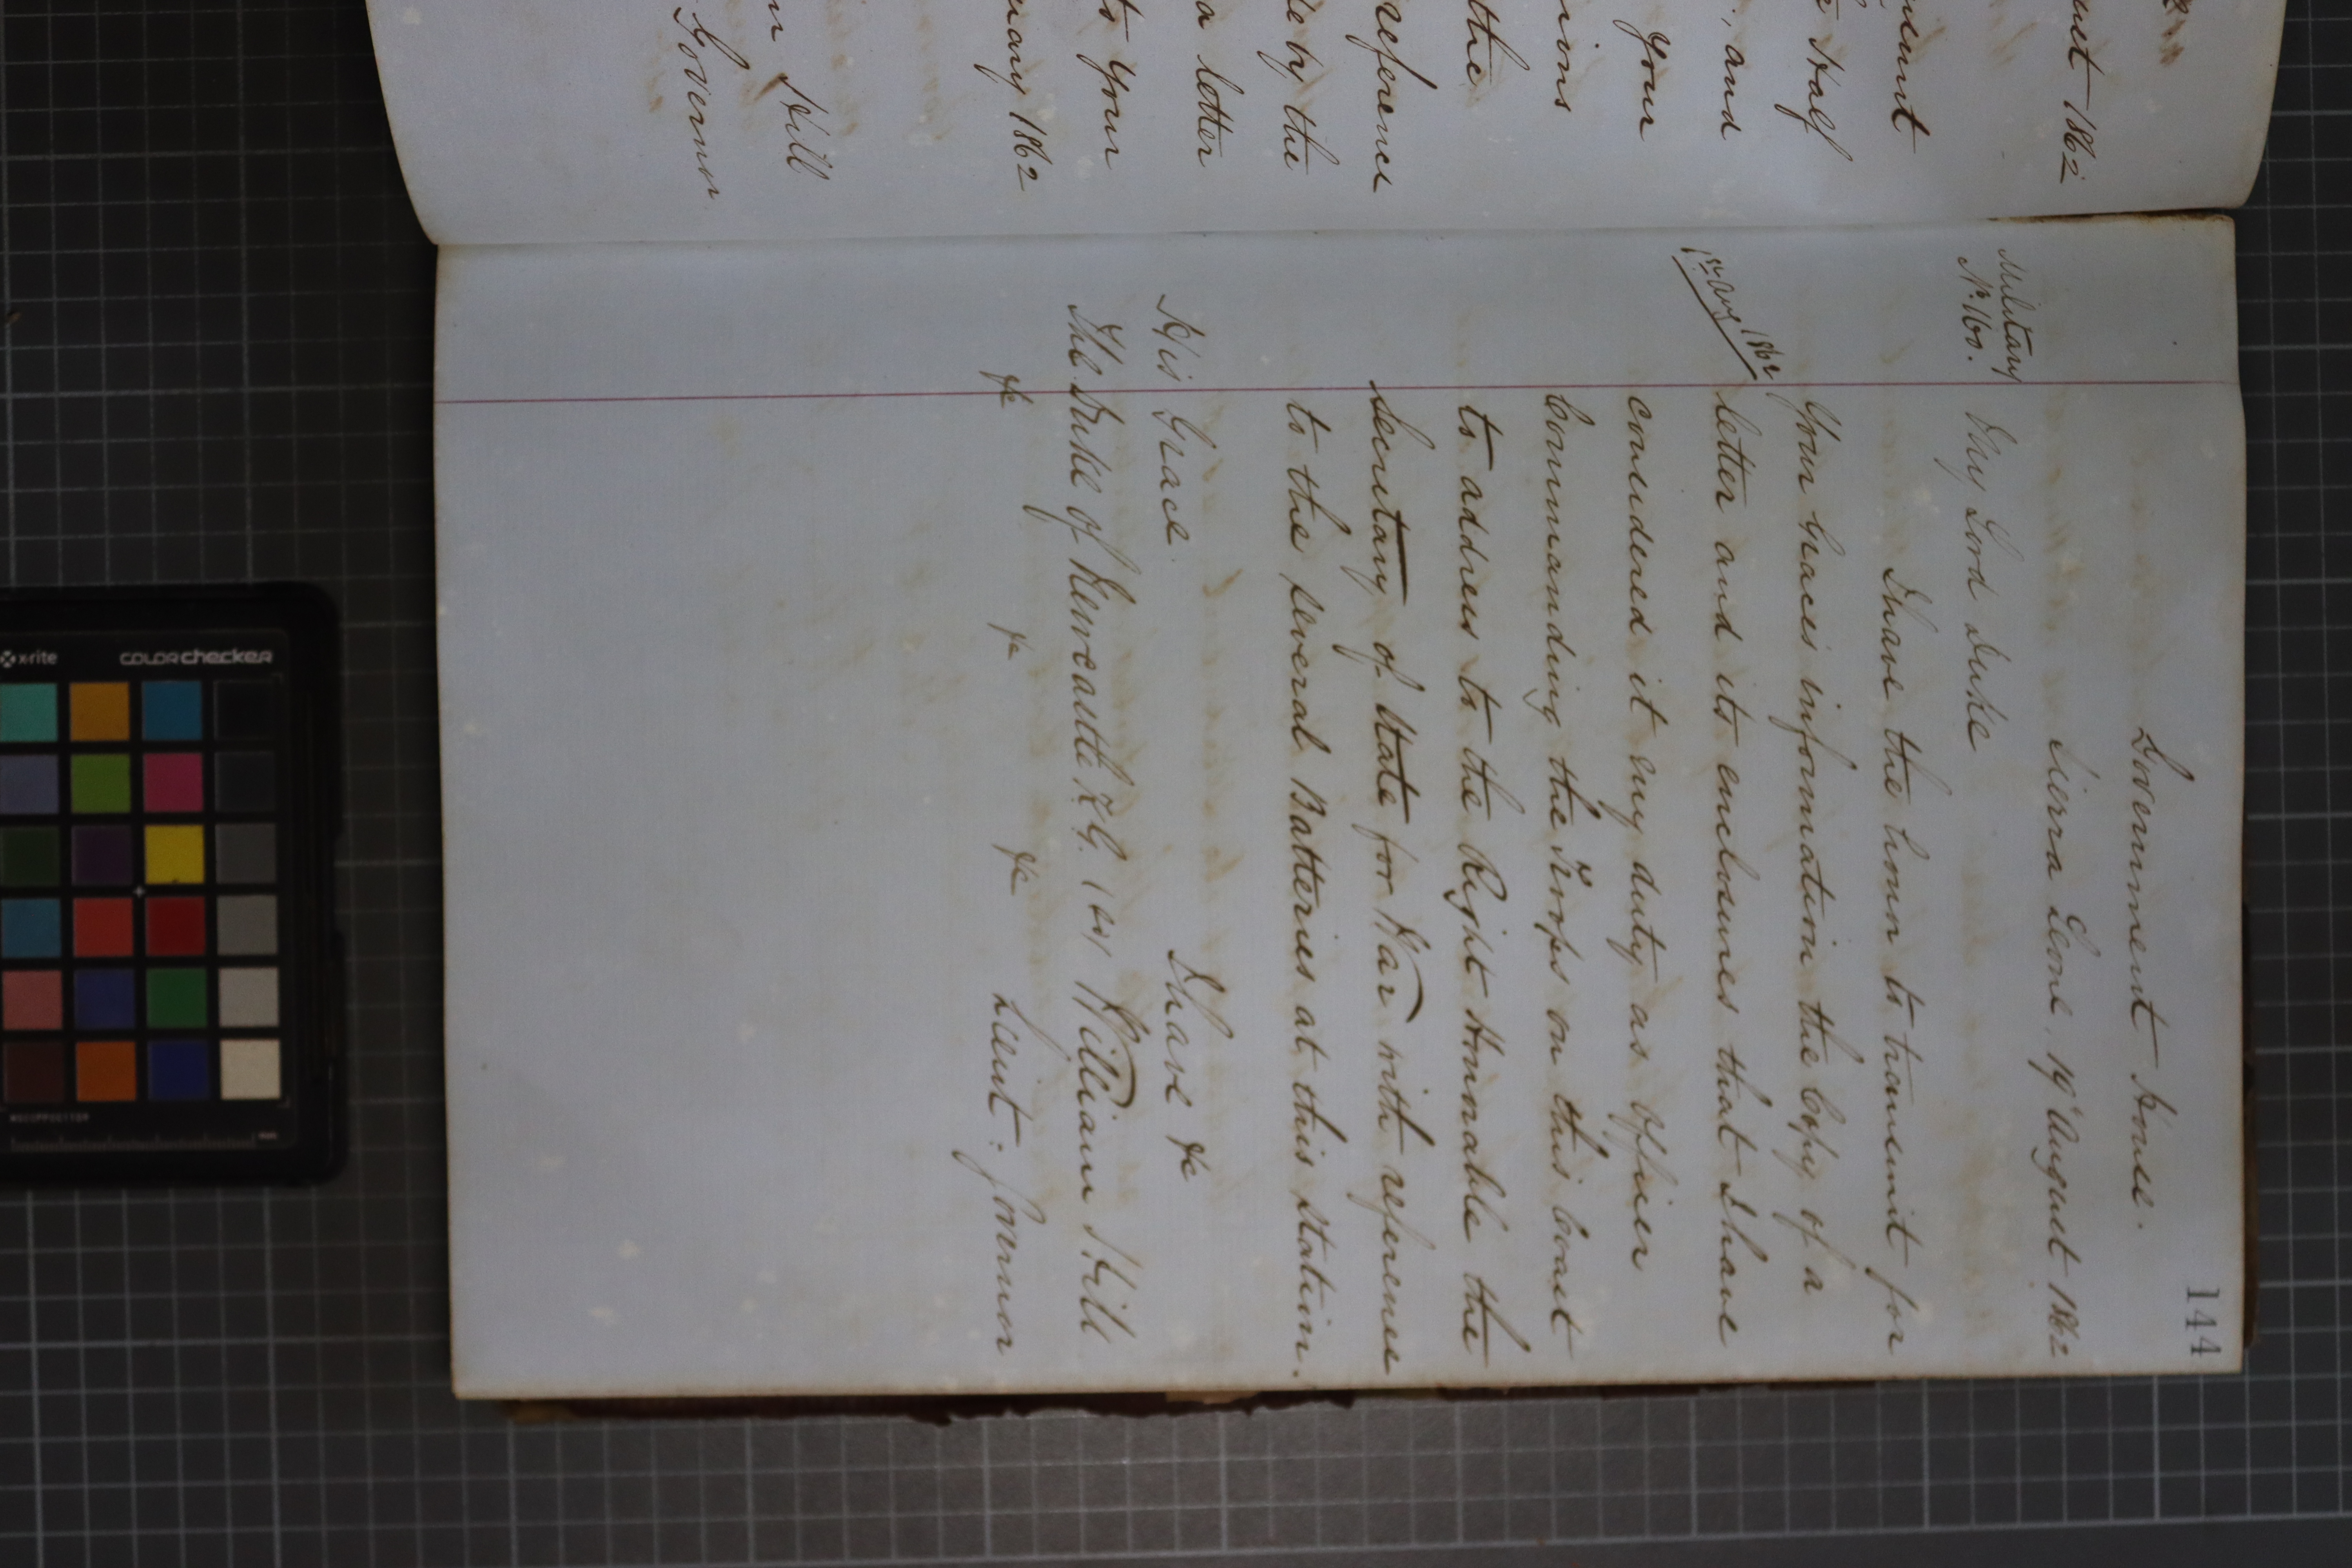 144
Government House.
Sierra Leone, 19th August 1862
Military
No. 160.
My Lord Duke
I have the honor to transmit for
Your Graces information the Copy of a
1st Aug 1862
letter and its enclosures that I have
considered it my duty as Officer
Commanding the Troops on this Coast
to address to the Right Honorable the
Secretary of State for War with reference
to the several Batteries at this Station.
I have &c
His Grace
The Duke of Newcastle K.G. (sd) William Hill
&c &c &c Lieut: Governor
ust 1862
Half
, and
your
the
reference
de by the
a letter
to your
uary 1862
n Hill
Governor
x-rite
colorchecker